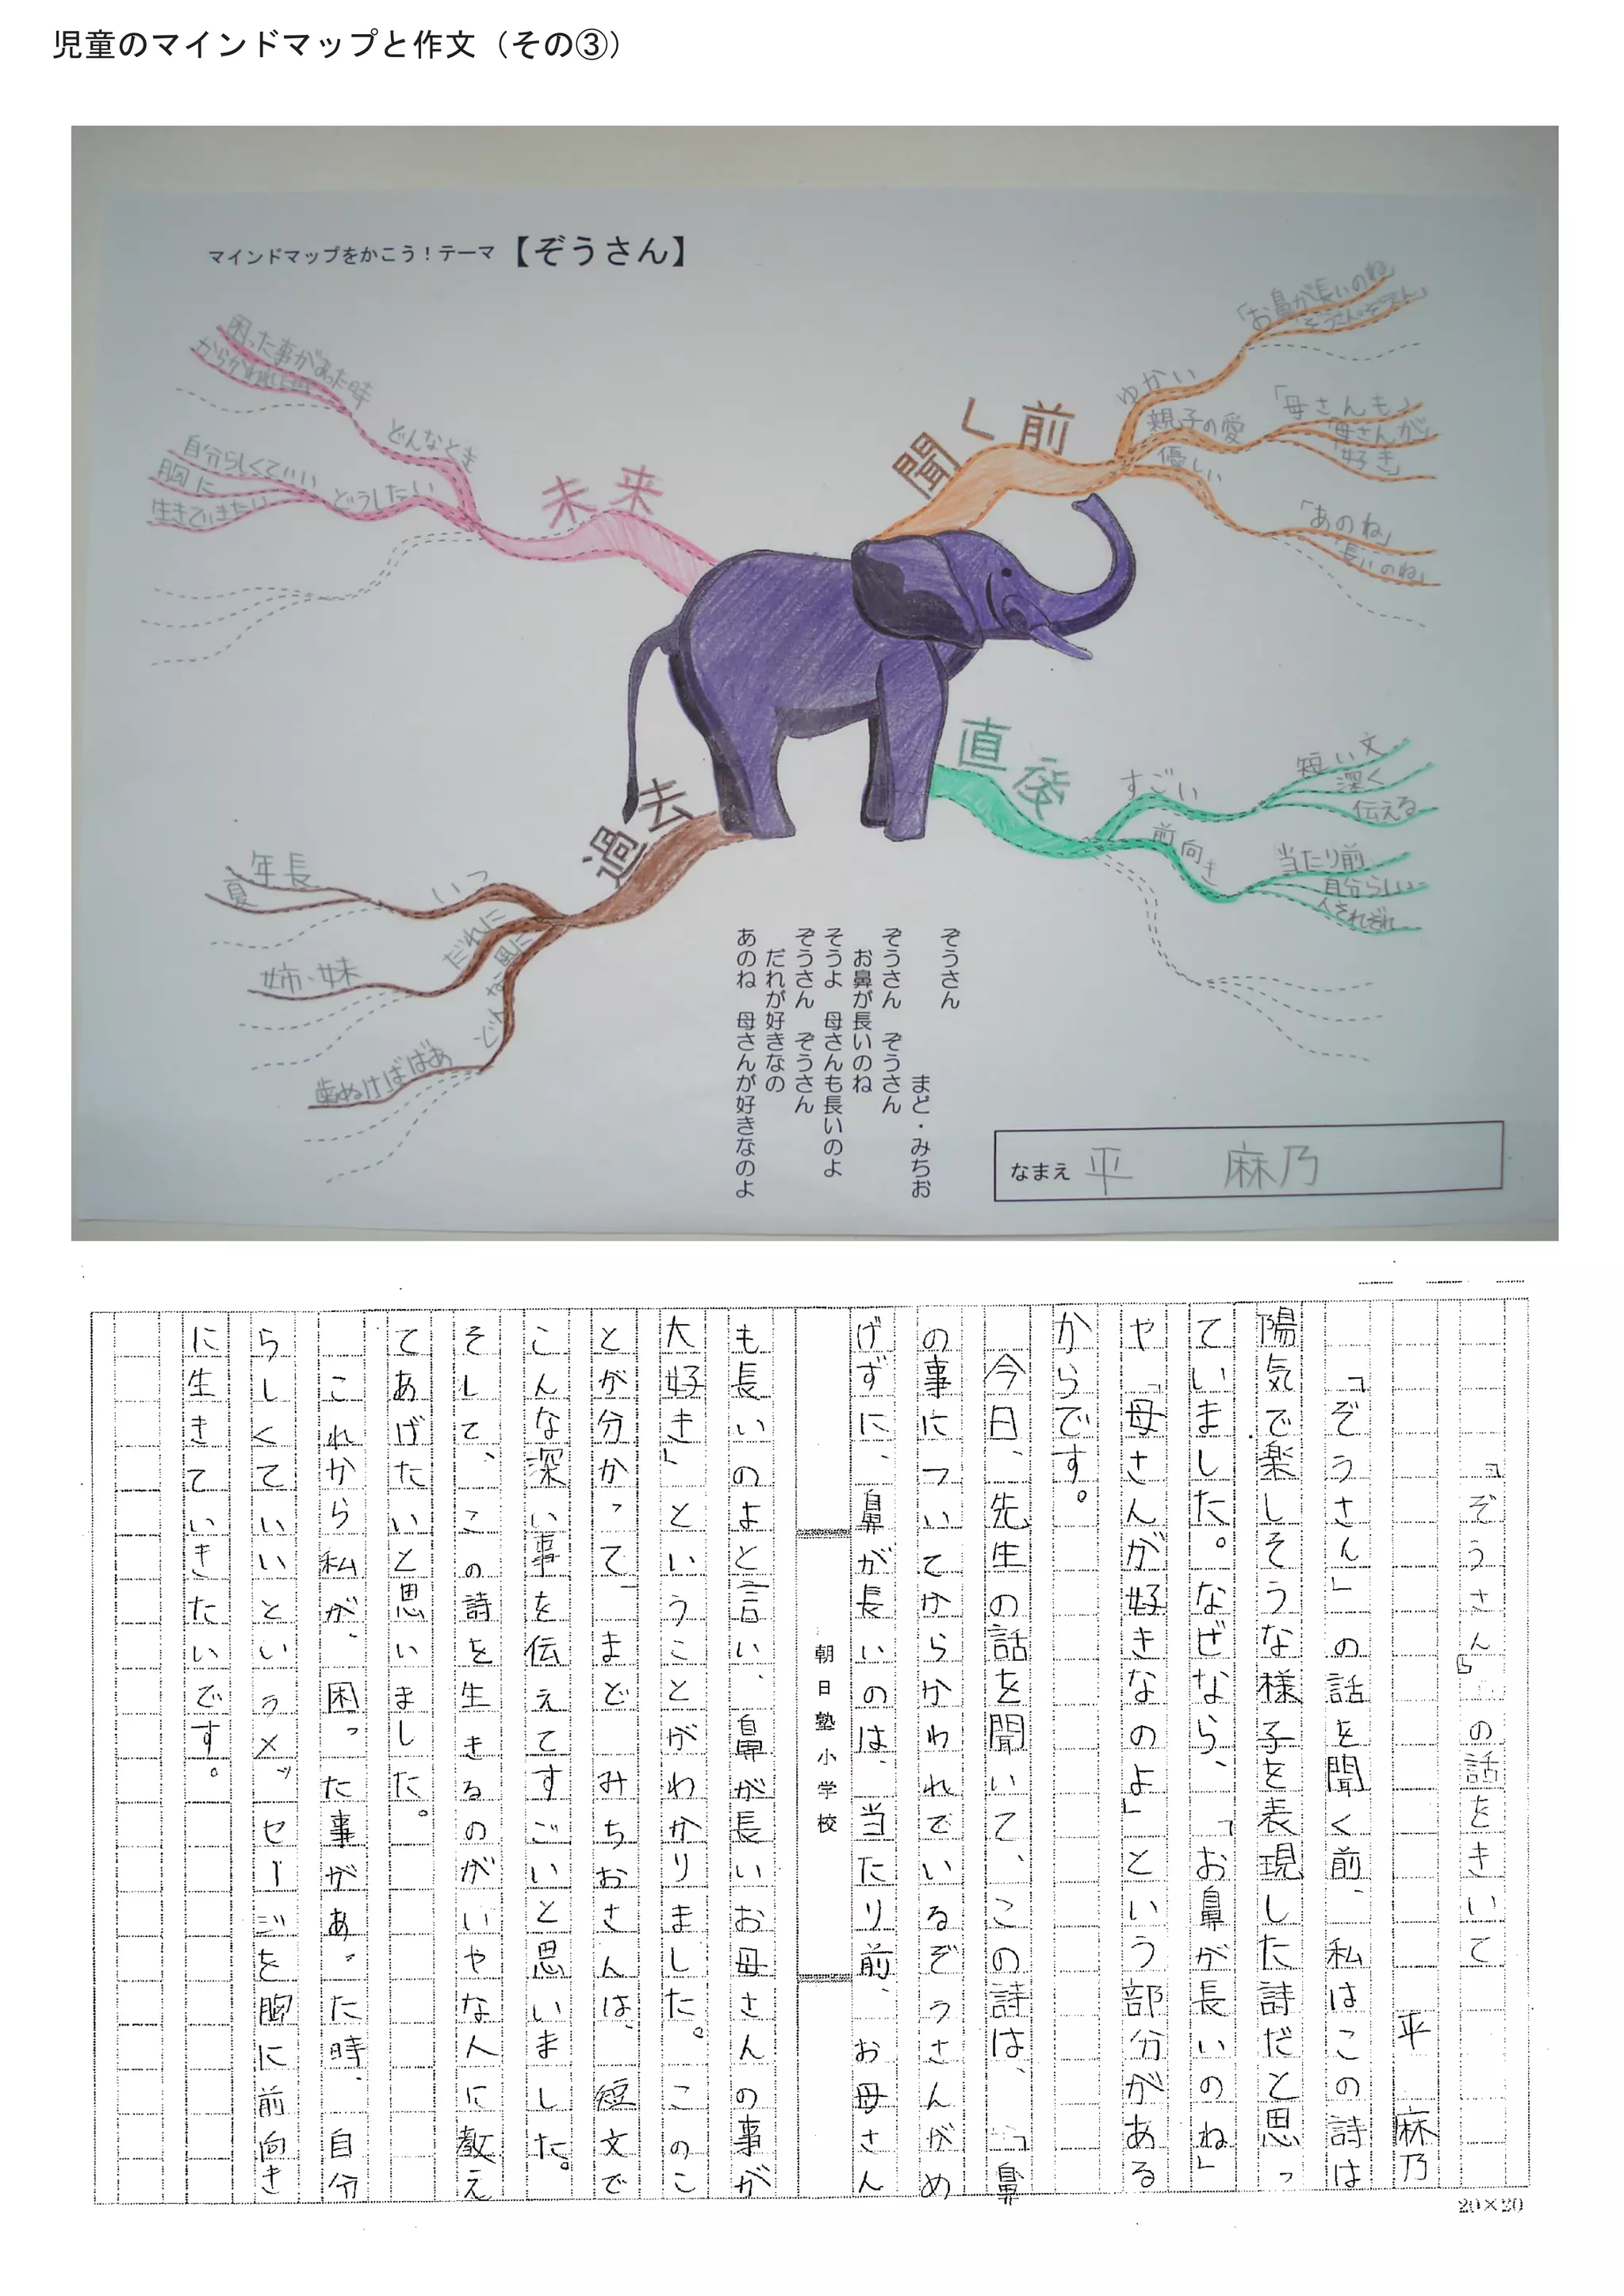 児童のマインドマップと作文（その③）
マインドマップをかこう！テーマ【ぞうさん】
聞く前
ゆかい
「お鼻が長いのね
ぞうさん・ぞうさん」
親子の愛
「母さんも」
「母さんが」
好き」
優しい
「あのね」
「長いのね」
直後
すごい
短い文
深く
伝える
前向き
当たり前
自分らしい
人それぞれ
過去
いつ
年長
夏
だれに
姉・妹
どんな風に
歯ぬけばばあ
未来
どんなとき
困った事があった時
からかわれた時
どうしたい
自分らしくていい
胸に
生きていきたい
ぞうさん
まど・みちお
ぞうさん　ぞうさん
お鼻が長いのね
そうよ　母さんも長いのよ
ぞうさん　ぞうさん
だれが好きなの
あのね　母さんが好きなのよ
なまえ 平　麻乃
『ぞうさん』の話をきいて
平　麻乃
「ぞうさん」の話を聞く前、私はこの詩は
陽気で楽しそうな様子を表現した詩だと思っ
ていました。なぜなら、「お鼻が長いのね」
や「母さんが好きなのよ」という部分がある
からです。
今日、先生の話を聞いて、この詩は、「鼻
の事についてからかわれているぞうさんがめ
げずに、鼻が長いのは、当たり前、お母さん
朝日塾小学校
も長いのよと言い、鼻が長いお母さんの事が
大好き」ということがわかりました。このこ
とが分かって、まど みちおさんは、短文で
こんな深い事を伝えてすごいと思いました。
そして、この詩を生きるのがいやな人に教え
てあげたいと思いました。
これから私が、困った事があった時、自分
らしくていいというメッセージを胸に前向き
に生きていきたいです。
20×20